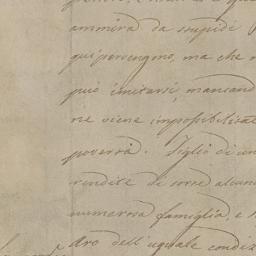 ammira da stupidi
qui pervengono, ma che
può imitarsi, mancand
ne viene impossibilitat
povertà. Figlio di un
rendite di sorte alcuna
numerosa famiglia, e
dro dell'uguale condiz